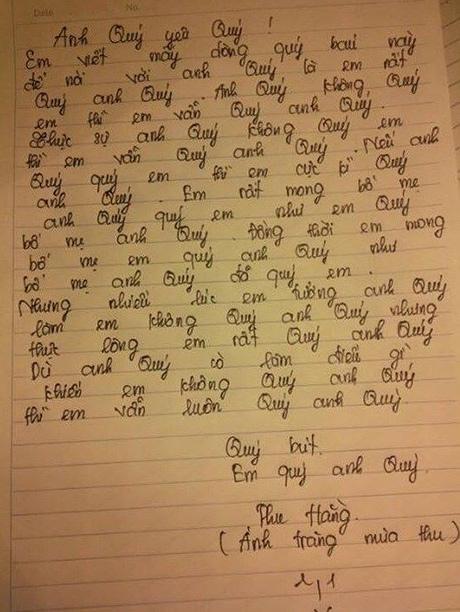 Date No.
Anh Quý yêu Quý !
Em viết mấy dòng quý báu này
để nói với anh Quý là em rất
Quý anh Quý. Anh Quý không Quý
em thì em vẫn Quý anh Quý.
Thực sự anh Quý không Quý em
thì em vẫn Quý anh Quý. Nếu anh
Quý quý em thì em cực kì Quý
anh Quý. Em rất mong bố mẹ
anh Quý quý em như em Quý
bố mẹ anh Quý. Đồng thời em mong
bố mẹ em quý anh Quý như
bố mẹ anh Quý đã quý em.
Nhưng nhiều lúc em tưởng anh Quý
làm em không Quý anh Quý nhưng
thực lòng em rất Quý anh Quý
Dù anh Quý có làm điều gì
khiến em không Quý anh Quý
thì em vẫn luôn Quý anh Quý.
Quý bút.
Em quý anh Quý.
Thu Hằng.
(Ánh trăng mùa thu)